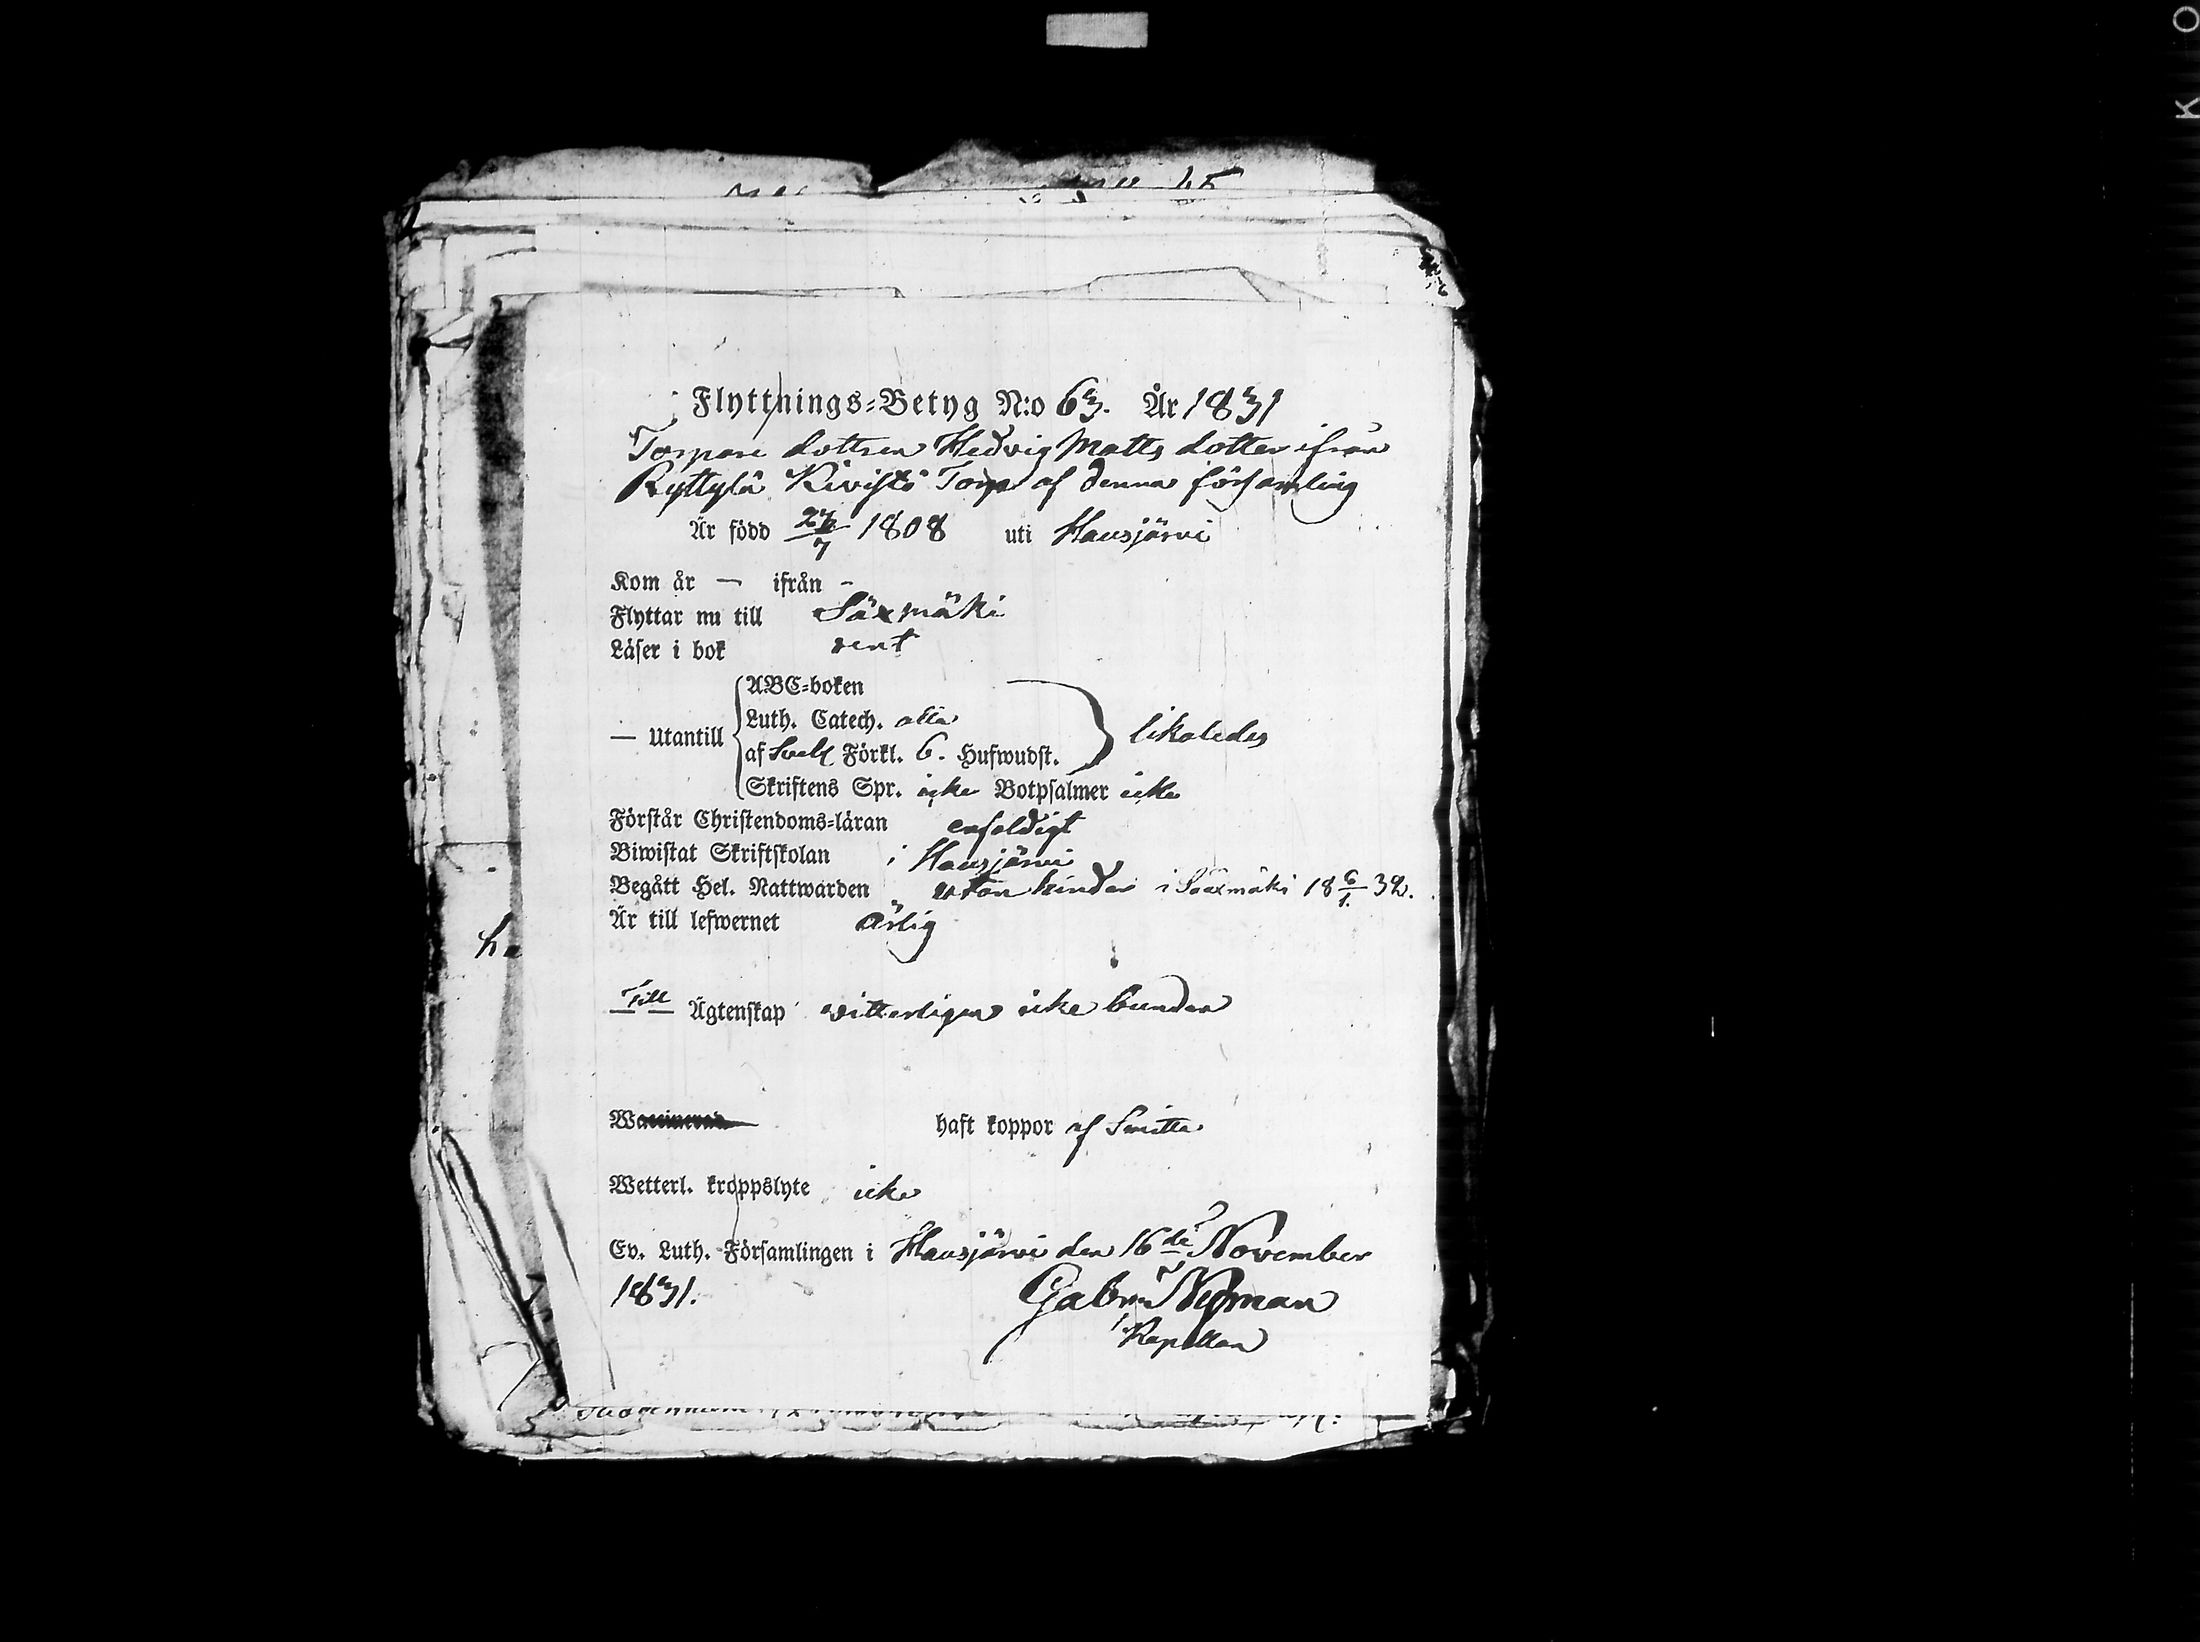 Flyttnings-Betyg N:o 63. År 1831
Torpare dottren Hedvig Matts dotter ifrån
Ryttylä Kivistö Torp af denna församling
Är född 27/7 1808 uti Hausjärvi
Kom år — ifrån -
Flyttar nu till Säxmäki
Läser i bok rent
— Utantill
ABC-boken
Luth. Catech. alla
af Sveb Förkl. 6. Hufwudst.
likaledes
Skriftens Spr. icke Botpsalmer icke
Förstår Christendoms-läran enfaldigt
Biwistat Skriftskolan i Hausjärvi
Begått Hel. Nattwarden utan hinder i Saaxmäki 18 6/1 32.
Är till lefwernet ärlig
Till Ägtenskap vitterligen icke bunden
Waccinerad haft koppor af Smitta
Wetterl. kroppslyte icke
Ev. Luth. Församlingen i Hausjärvi den 16de November
1831. Gabr. Nyman
Kapellan